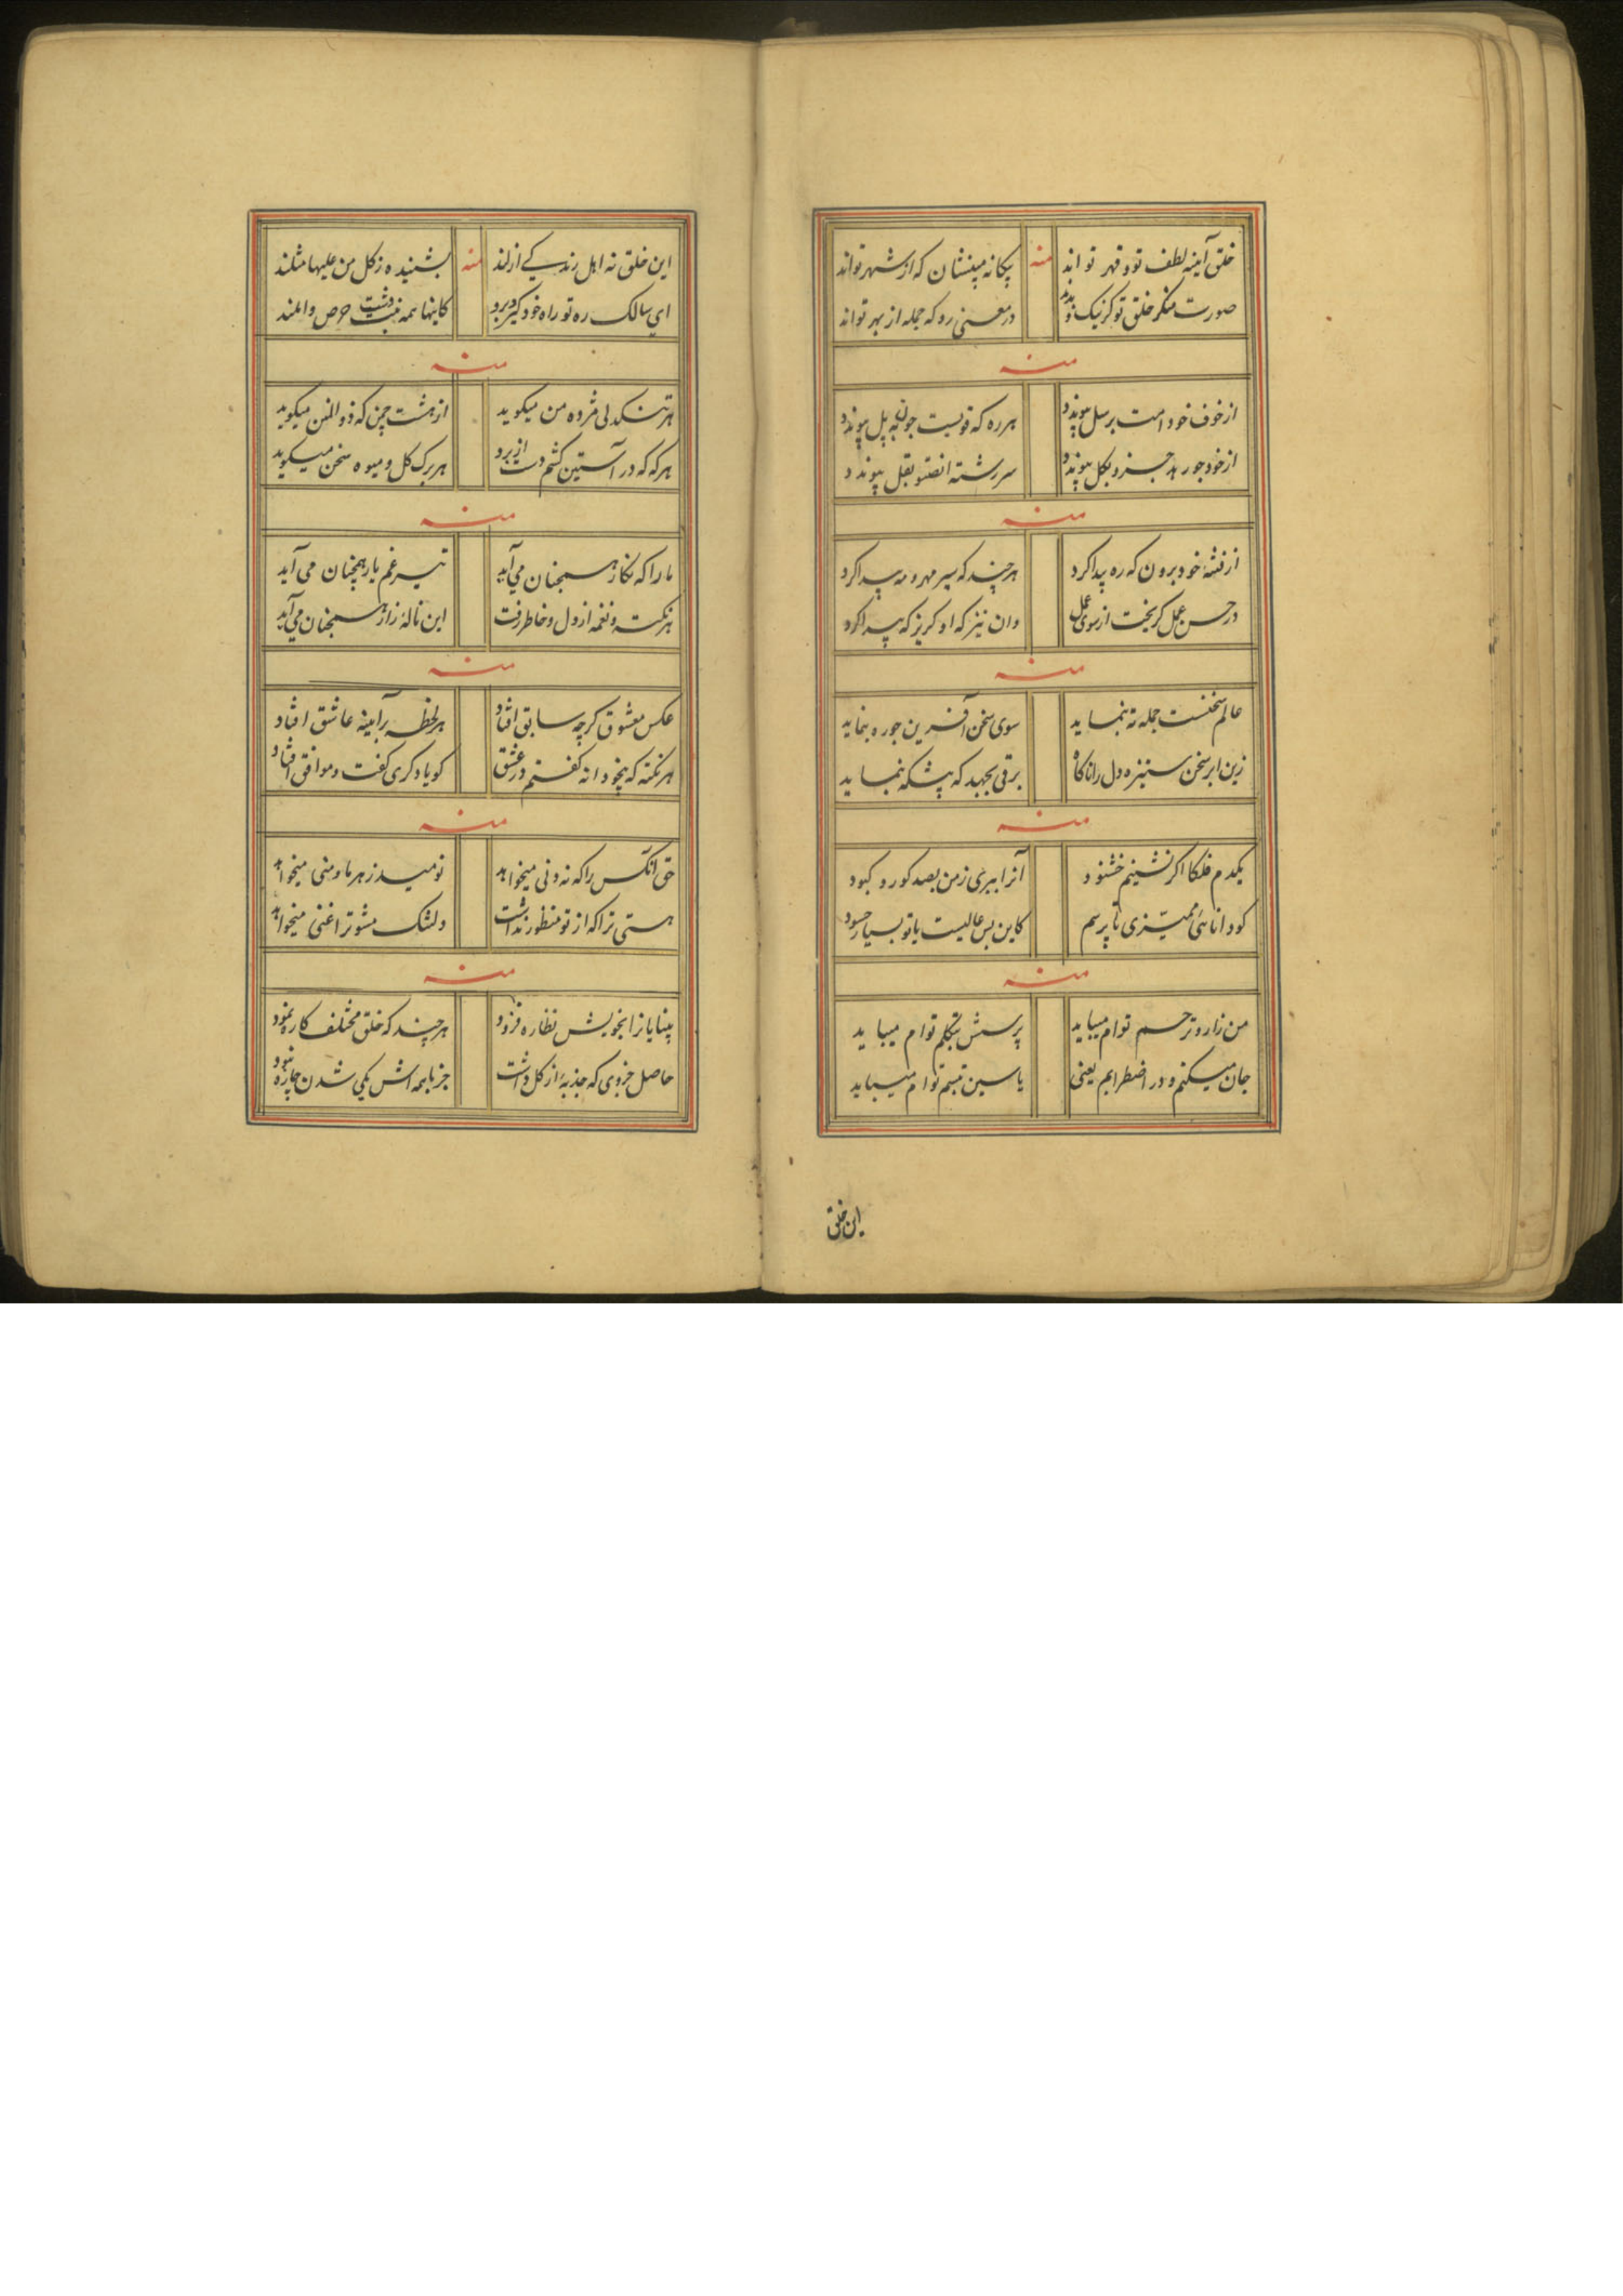 خلق آینهٔ لطف تو و قهر تواند منه بیکانه مبینشان که از شهر تواند
صورت منکر خلق تو کر نیک و بدند در معنی رو که جمله از بهر تواند
منه
از خوف خود امت برسل پیوندد هر ره که قویست جون به پل پیوندد
از خود جو رهد جزو بکل پیوندد سر رشته انصتو بقل پیوندد
منه
از فتنهٔ خود برون که ره پیدا کرد هر چند که سیر مهر و مه پیدا کرد
در حسن عمل کریخت از سوی عمل وان نیز که او کریز که پیدا کرد
منه
عالم سخنست جمله ته بنماید سوی سخن آفرین جو ره بنماید
زین ابر سخن ستیزه دل را ناکاه برقی بجهد که پیشکه بنماید
منه
یکدم فلکا اکر نشینم خشنود آنرا ببری ز من بصد کور و کبود
کو دانائی ممیزی تا پرسم کاین بس عالیست یا تو بسیار حسود
منه
من زار و ترحم توام میباید پرسش بتکلم توام میباید
جان میکنم و در اضطرابم یعنی یاسین تبسم توام میباید
این خلق
این خلق نه اهل زندکی ازلند منه بشنیده ز کل من علیها مثلند
ای سالک ره تو راه خود کیر و برو کاینها همه نبت دشت حرص و املند
منه
هر تنکدلی مژده من میکوید از هشت چمن که ذو المنن میکوید
هر که که در آستین کشم دست از برد هر برک کل و میوه سخن میکوید
منه
ما را که نکار همچنان می‌آید تیر غم یار همچنان می آید
هر نکته و نغمه از دل و خاطر رفت این نالهٔ زار همچنان می‌آید
منه
عکس معشوق کرچه سابق افتاد هر لحظه بر آیینه عاشق افتاد
هر نکته که بیخودانه کفتم در عشق کویا دکری کفت و موافق افتاد
منه
حق آنکس را که نه دنی میخواهد نومید ز هر ما و منی میخواهد
هستی ترا که از تو منظور نداشت دلتنک مشو ترا غنی میخواهد
منه
بینایانرا بخویش نظاره فزود هر چند که خلق مختلف کاره نمود
حاصل جزوی که جذبهٔ از کل داشت جز با همه اش یکی شدن چاره نبود